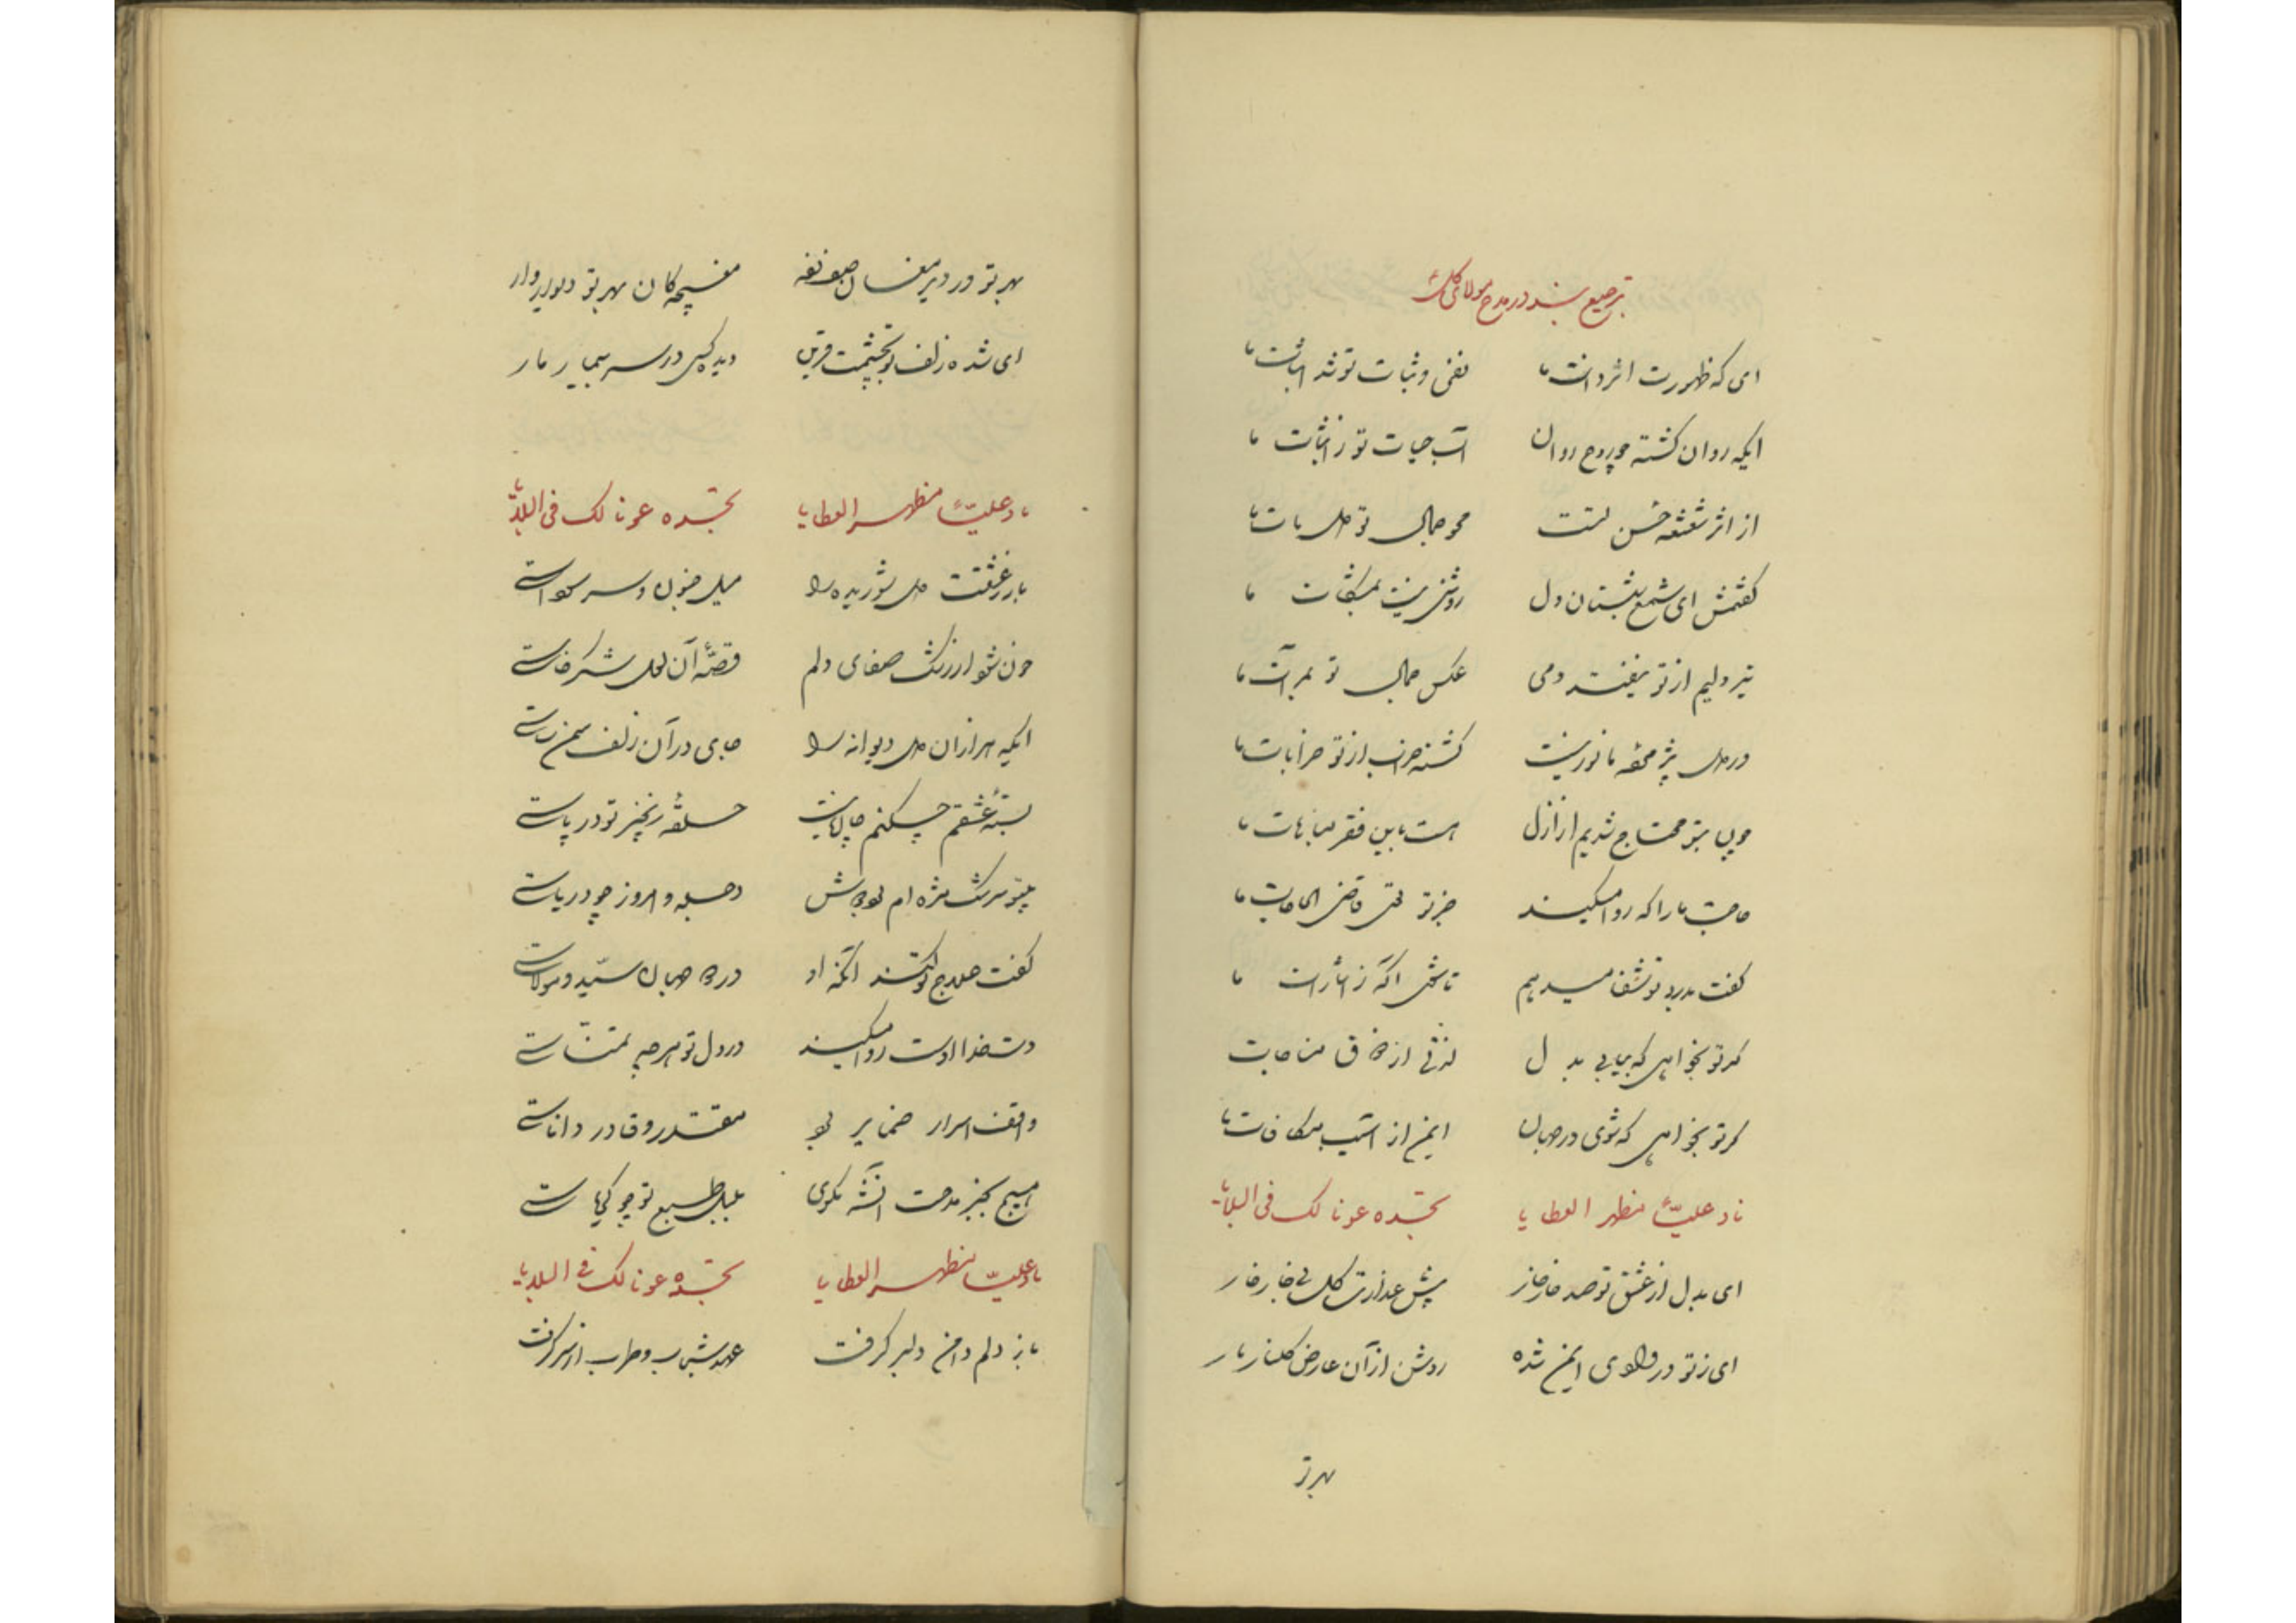 ترجیع بند در مدح مولای
ای که ظهورت اثر ذات ما نفی و ثبات تو شد اثبات ما
ایکه روان گشته چو روح روان آب حیات تو ز ما
از اثر شعشعه حسن تست محو جمال تو دل مات ما
گفتمش ای شمع شبستان دل روشنی نیست بمشکات ما
تیر دلیم از تو نیفتد دمی عکس جمال تو بمرآت ما
در دل نور نیست گشته خراب از تو خرابات ما
چون بتو محتاج شدیم از ازل هست باین فقر مباهات ما
حاجت ما را که روا میکند جز تو قاضی الحاجات ما
گفت بدرد تو شفا میدهم تا اگه ز ما
گر تو بخواهی که بیابی بدل لذتی از ذوق مناجات
گر تو بخواهی که شوی در جهان ایمن از آسیب مکافات ما
ناد علیّاً مظهر العطایا تجده عونا لک فی البلایا
ای بدل از عشق تو صد خار خار پیش عذارت گل بی خار خار
ای ز تو در وادی ایمن شده روشن از آن عارض گلنار نار
بهر تو
بهر تو در دیر مغان صف زده مغبچه کان بهر تو
ای شده زلف تو بچشمت قرین دیده کسی در سر بیمار مار
ناد علیّاً مظهر العطایا تجده عونا لک فی البلایا
باز ز عشقت دل شوریده را میل جنون و سر سوداست
چون شنود از صفای دلم قصّهٔ آن لعل شکرخاست
ایکه هزاران دل دیوانه را جای در آن زلف سمن ساست
بستهٔ عشقم چکنم چاره نیست حلقهٔ زنجیر تو در پاست
بیتو سرشک مژه ام بود دجله و امروز چو دریاست
گفت علاج تو کند آنکه او در دو جهان سیّد و مولاست
دست خدا اوست روا میکند در دل تو هر چه تمنّاست
واقف اسرار ضمایر بود مقتدر و قادر و داناست
هیچ بجز مدحت نگوی بلبل طبع تو چو گویاست
ناد علیّاً مظهر العطایا تجده عونا لک فی البلایا
باز دلم دامن دلبر گرفت عهد شباب و طرب از سر گرفت